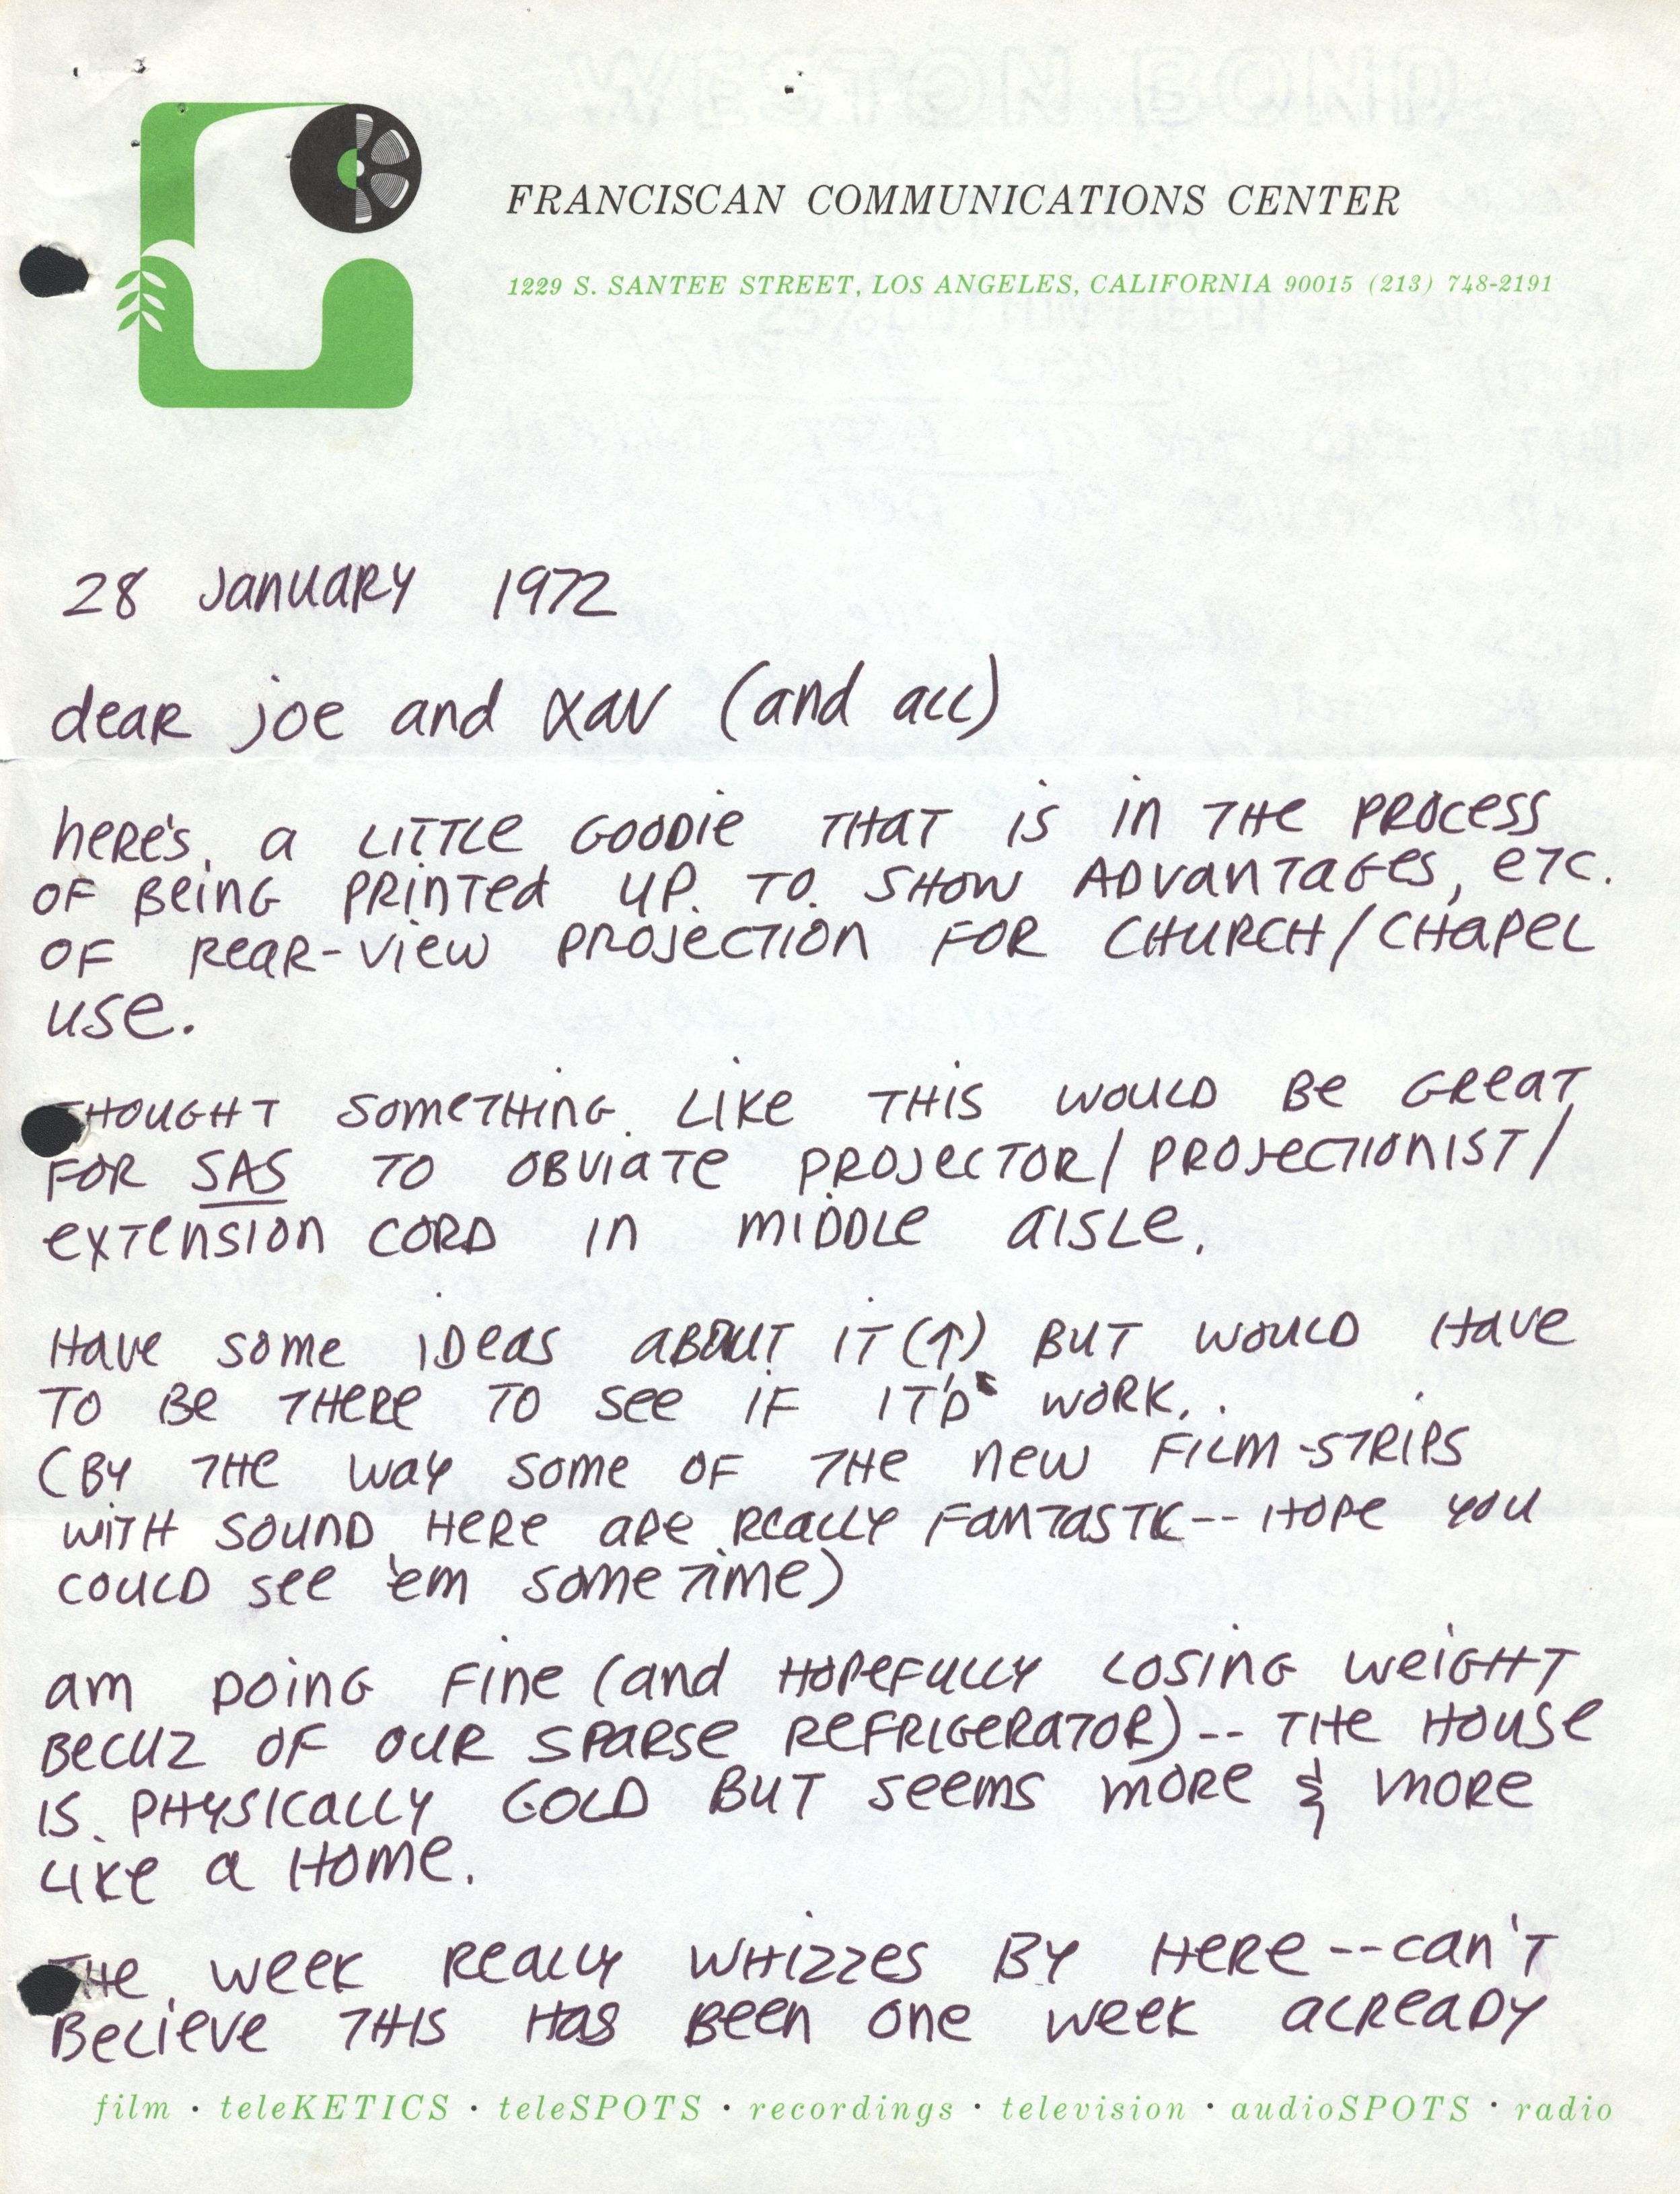 FRANCISCAN COMMUNICATIONS CENTER
1229 S. SANTEE STREET, LOS ANGELES, CALIFORNIA 90015 (213) 748-2191
28 January 1972
dear joe and xav (and all)
here's a little goodie that is in the process
of being printed up to show advantages, etc.
of rear-view projection for church/chapel
use.
Thought something like this would be great
for SAS to obviate projector/projectionist/
extension cord in middle aisle.
Have some ideas about it (↑) but would have
to be there to see if it'd work.
(By the way some of the new film-strips
with sound here are really fantastic -- hope you
could see 'em sometime)
am doing fine (and hopefully losing weight
becuz of our sparse refrigerator) -- the house
is physically cold but seems more & more
like a home.
The week really whizzes by here -- can't
believe this has been one week already
film · teleKETICS · teleSPOTS · recordings · television · audioSPOTS · radio